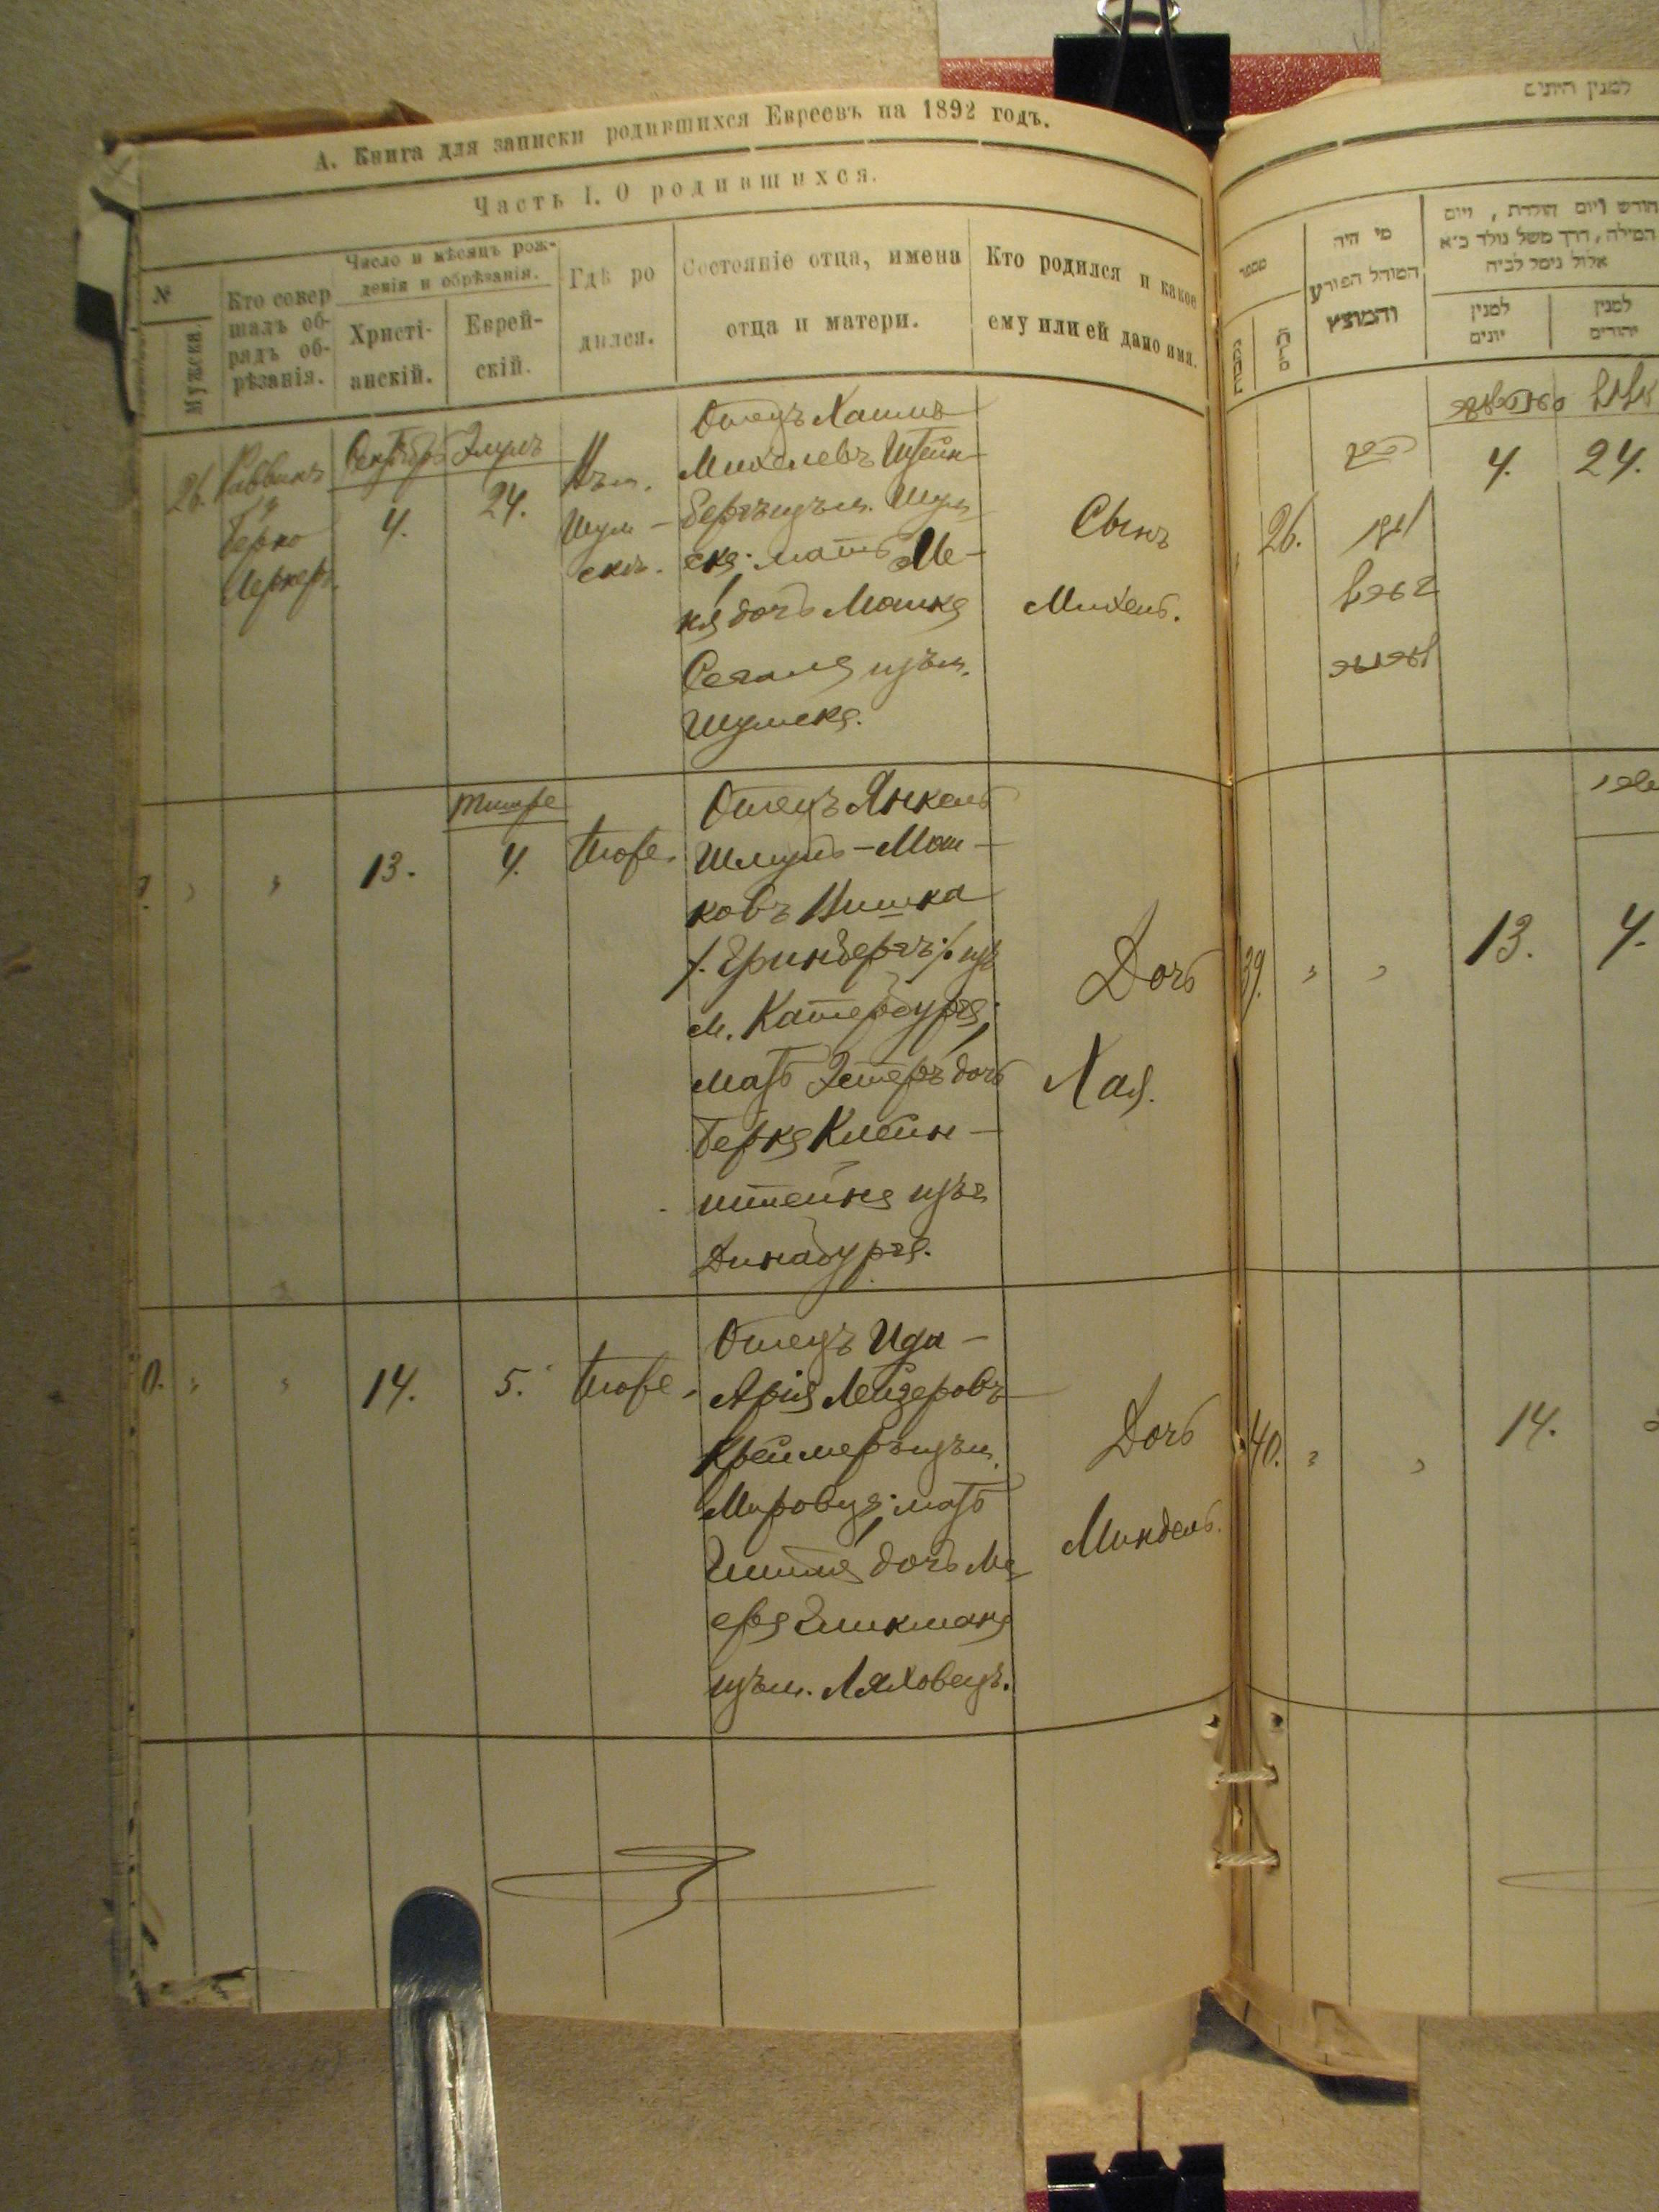 А. Книга для записки родившихся Евреевъ на 1892 годъ.
Часть I. О родившихся.
№
Мужска.
Кто совер
шалъ об-
рядъ об-
рѣзанія.
Число и мѣсяцъ рож-
денія и обрѣзанія.
Христі-
анскій.
Еврей-
скій.
Гдѣ ро
дился.
Состояніе отца, имена
отца и матери.
Кто родился и какое
ему или ей дано имя.
26.
Раввинъ
Берко
Лернеръ.
Сентябрь
4.
Элулъ
24.
Въ м.
Шум-
скѣ.
Отецъ Хаимъ
Михелевъ Штейн-
бергъ изъ м. Шум
ска; мать Ме-
ня дочь Мошка
Сегаля изъ м.
Шумска.
Сынъ
Михель.
13.
Тишре
4.
тоже.
Отецъ Янкель
Шмуль-Мош-
ковъ Вишка
/. Гринбергъ ./ изъ
м. Катербурга;
мать Эстеръ дочь
Берка Клейн-
штейна изъ г.
Динабурга.
Дочь
Хая.
14.
5.
тоже.
Отецъ Ида-
Арія Лейзеровъ
Креймеръ изъ м.
Мировца; мать
Гитля дочь Ме
ера Гликмана
изъ м. Ляховецъ.
Дочь
Миндель.
למנין היתים
מספר
מי היה
המוהל הפורע
והמוצץ
חודש ויום הולדת, ויום
המילה, דרך משל נולד כ״א
אלול נימל לבית
למנין
יונים
למנין
יהודים
26.
4.
24.
אלול
39.
13.
4.
40.
14.